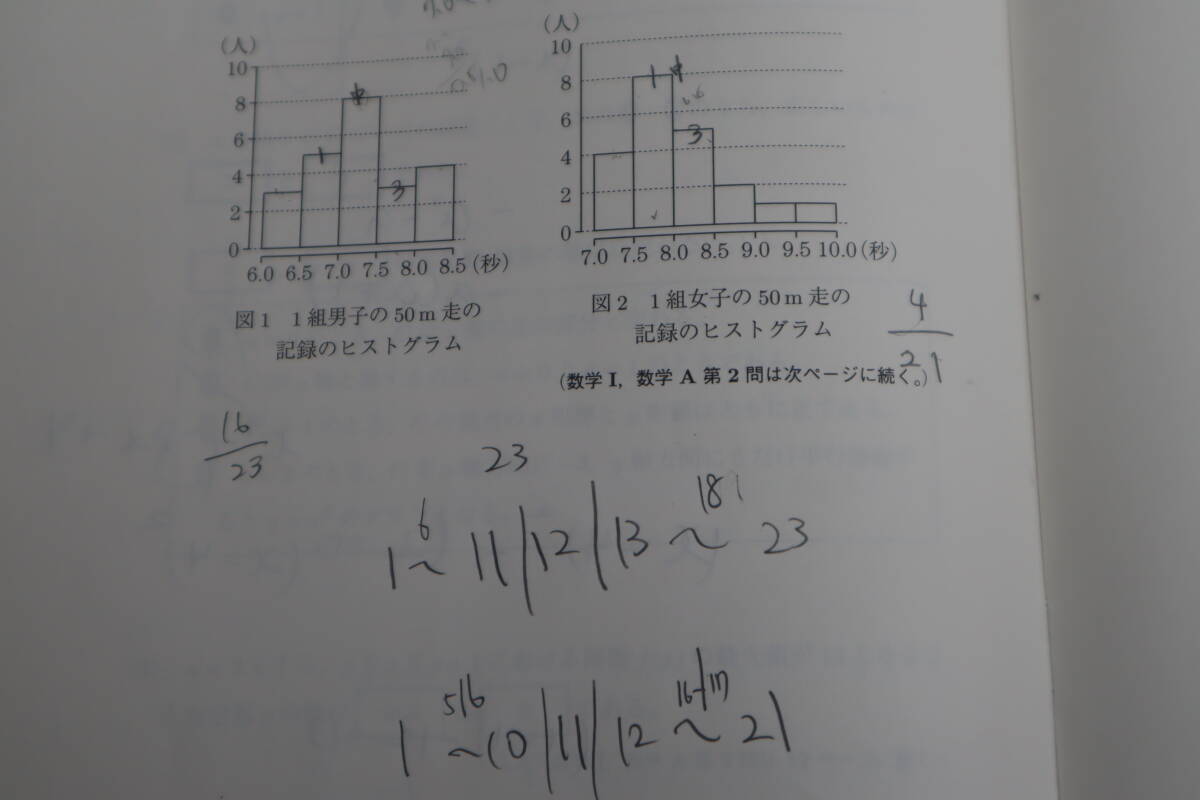 (人)
10
8
6
4
2
0
6.0 6.5 7.0 7.5 8.0 8.5 (秒)
1
中
3
図1 1組男子の50m走の
記録のヒストグラム
(人)
10
8
6
4
2
0
7.0 7.5 8.0 8.5 9.0 9.5 10.0 (秒)
1
中
3
図2 1組女子の50m走の
記録のヒストグラム
(数学I, 数学A 第2問は次ページに続く。)
4
21
16
23
23
6 18
1~11|12|13~23
5|6 16|17
1~10|11|12~21